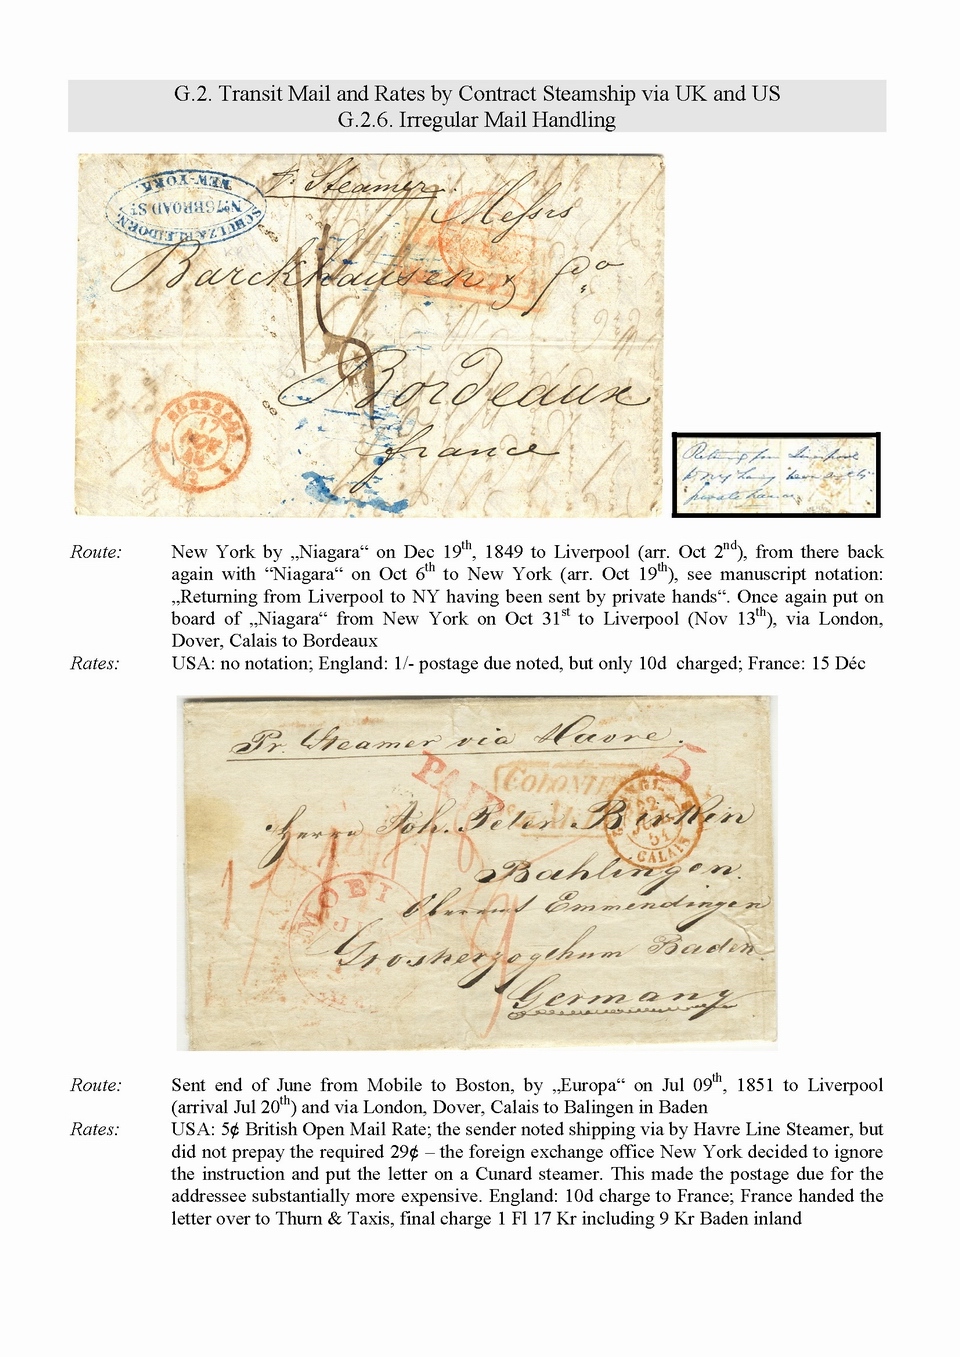 G.2. Transit Mail and Rates by Contract Steamship via UK and US
G.2.6. Irregular Mail Handling
SCHULZ & RLEIDOEN,
No 76 BROAD ST.
NEW-YORK.
p. Steamer.
Messrs
Barckhausen & Co
Bordeaux
france
BORDEAUX
17
Returning from Liverpool
to NY having been sent by
private hands
Route: New York by „Niagara“ on Dec 19th, 1849 to Liverpool (arr. Oct 2nd), from there back
again with “Niagara“ on Oct 6th to New York (arr. Oct 19th), see manuscript notation:
„Returning from Liverpool to NY having been sent by private hands“. Once again put on
board of „Niagara“ from New York on Oct 31st to Liverpool (Nov 13th), via London,
Dover, Calais to Bordeaux
Rates: USA: no notation; England: 1/- postage due noted, but only 10d charged; France: 15 Déc
Pr. Steamer via Havre.
PAID
5
COLONIES
&c. ART.
ANGL.
22
51
CALAIS
Herrn Joh. Peter Birkin
Bahlingen.
Oberamt Emmendingen
Grosherzogthum Baden.
Germany
MOBI
JU
Route: Sent end of June from Mobile to Boston, by „Europa“ on Jul 09th, 1851 to Liverpool
(arrival Jul 20th) and via London, Dover, Calais to Balingen in Baden
Rates: USA: 5¢ British Open Mail Rate; the sender noted shipping via by Havre Line Steamer, but
did not prepay the required 29¢ – the foreign exchange office New York decided to ignore
the instruction and put the letter on a Cunard steamer. This made the postage due for the
addressee substantially more expensive. England: 10d charge to France; France handed the
letter over to Thurn & Taxis, final charge 1 Fl 17 Kr including 9 Kr Baden inland